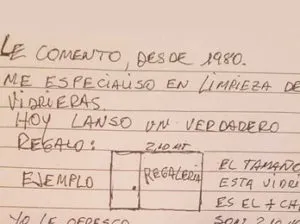 LE COMENTO, DESDE 1980.
ME ESPECIALISO EN LIMPIEZA DE
VIDRIERAS.
HOY LANSO UN VERDADERO
REGALO: 2,10 MT
EJEMPLO REGALERIA
EL TAMAÑO
ESTA VIDRI
ES EL + CH
YO LE OFRESCO